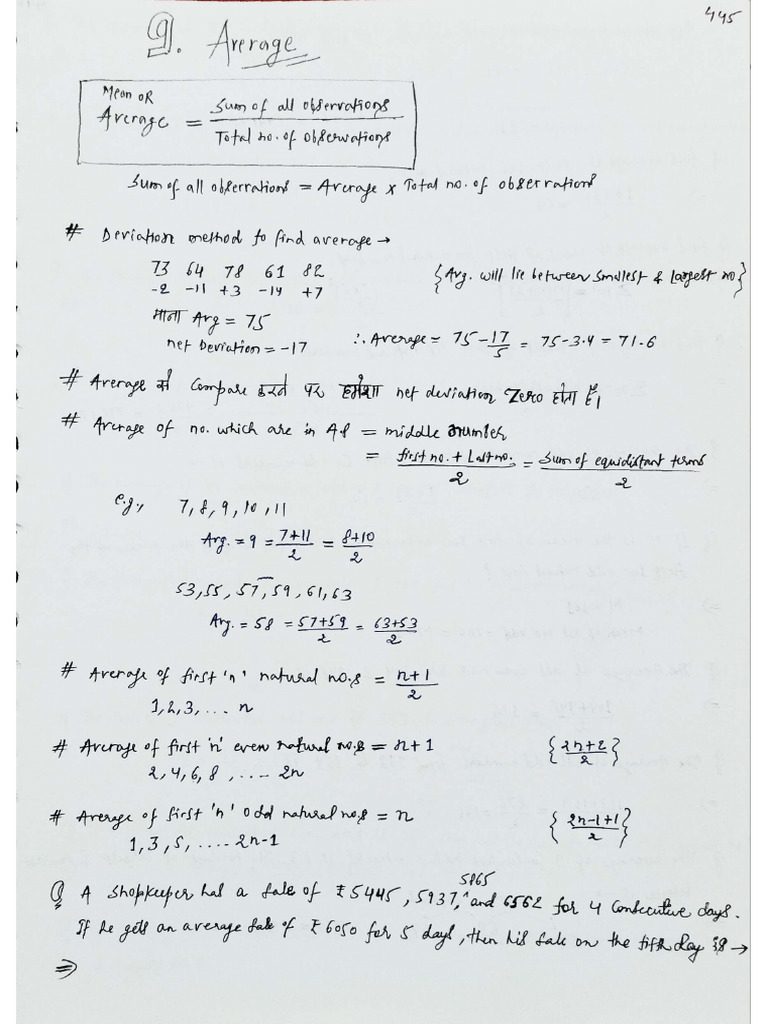 445
9. Average
Mean OR
Average = Sum of all observations / Total no. of observations
Sum of all observations = Average × Total no. of observations
# Deviation method to find average →
73 64 78 61 82 {Avg. will lie between smallest & largest no.}
-2 -11 +3 -14 +7
माना Avg = 75
net Deviation = -17 ∴ Average = 75 - 17/5 = 75 - 3.4 = 71.6
# Average से Compare करने पर हमेशा net deviation Zero होता है।
# Average of no. which are in AP = middle number
= first no. + Last no. / 2 = Sum of equidistant terms / 2
e.g., 7, 8, 9, 10, 11
Avg. = 9 = 7+11 / 2 = 8+10 / 2
53, 55, 57, 59, 61, 63
Avg. = 58 = 57+59 / 2 = 63+53 / 2
# Average of first 'n' natural no.s = n+1 / 2
1, 2, 3, ... n
# Average of first 'n' even natural no.s = n+1 {2n+2 / 2}
2, 4, 6, 8, .... 2n
# Average of first 'n' Odd natural no.s = n {2n-1+1 / 2}
1, 3, 5, ..... 2n-1
5865
Q A shopkeeper has a sale of ₹5445, 5937, ^ and 6562 for 4 consecutive days.
If he gets an average sale of ₹6050 for 5 days, then his sale on the fifth day is →
⇒